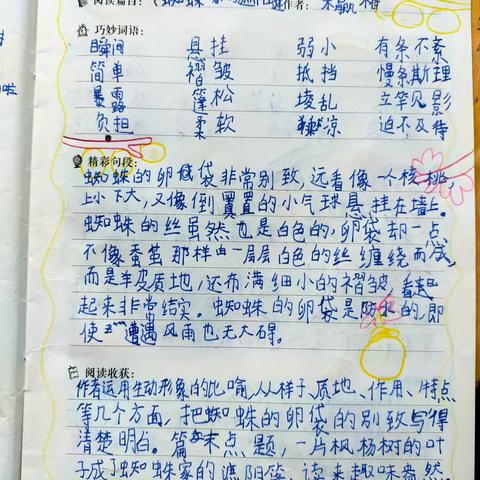 阅读篇目:《蜘蛛家的遮阳篷 作者:朱赢椿
巧妙词语:
瞬间 悬挂 弱小 有条不紊
简单 褶皱 抵挡 慢条斯理
暴露 蓬松 凌乱 立竿见影
负担 柔软 凉 迫不及待
精彩句段:
蜘蛛的卵袋非常别致,远看像一个核桃,
上小下大,又像倒置的小气球悬挂在墙上。
蜘蛛的丝虽然也是白色的,卵袋却一点
不像蚕茧那样由一层层白色的丝缠绕而成,
而是羊皮质地,还布满细小的褶皱,看起
起来非常结实。蜘蛛的卵袋是防水的,即
使遭遇风雨也无大碍。
阅读收获:
作者运用生动形象的比喻,从样子、质地、作用、特点
等几个方面,把蜘蛛的卵袋的别致写得
清楚明白。篇末点题,一片枫杨树的叶
子成了蜘蛛家的遮阳篷,读来趣味盎然。